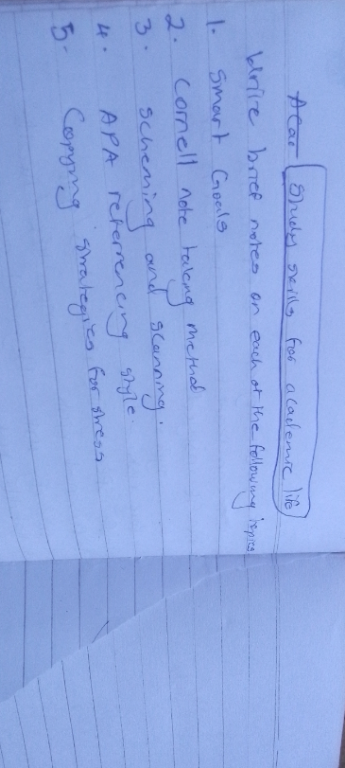 Acad Study skills for academic life
Write brief notes on each of the following topics
1. Smart Goals
2. Cornell note taking method
3. Scheming and scanning.
4. APA referrencing style.
5. Copying strategies for stress